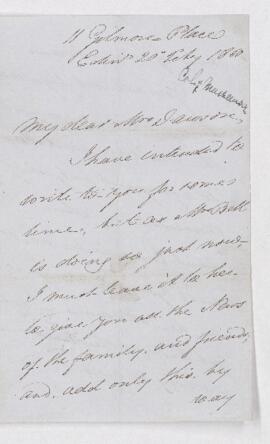 11 Gilmore Place
Edinr 20th Feby 1860
My dear Mrs Dawson,
I have intended to
write to you for some
time, but as Mrs Bell
is doing so just now
I must leave it to her
to give you all the News
of the family and friends,
and add only this by
way